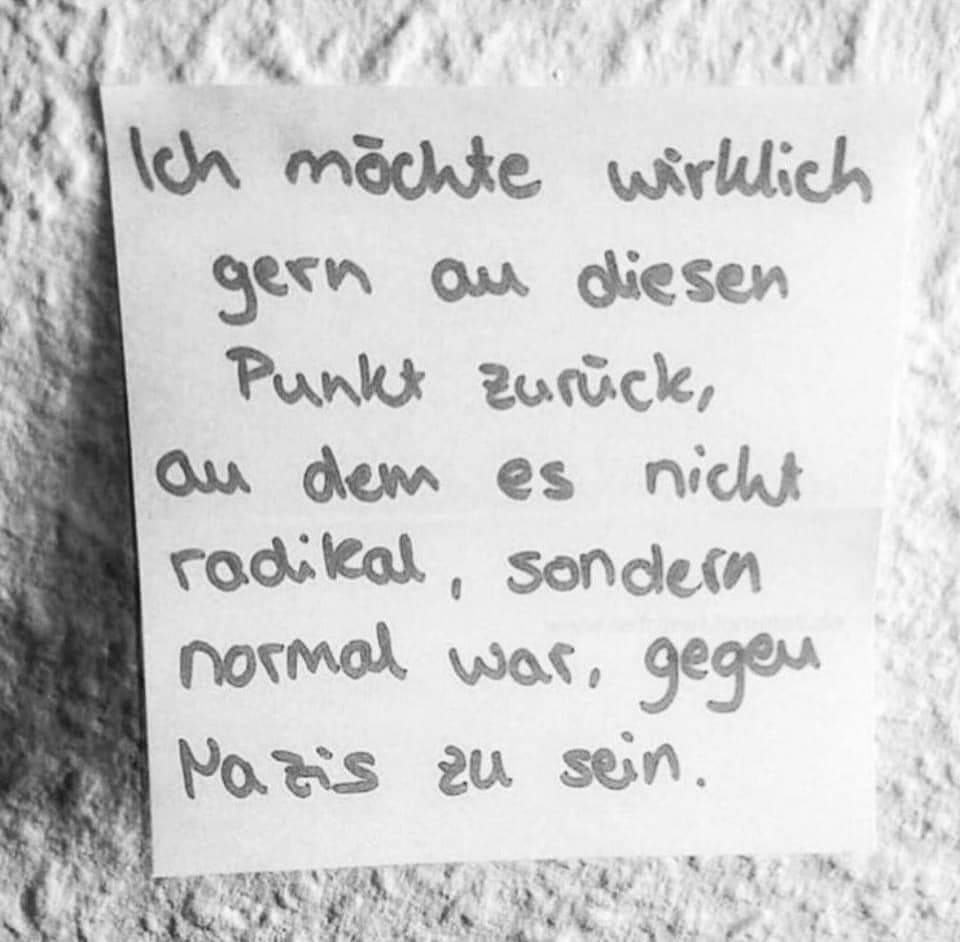 Ich möchte wirklich
gern an diesen
Punkt zurück,
an dem es nicht
radikal, sondern
normal war, gegen
Nazis zu sein.